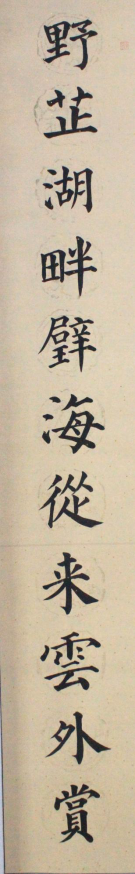 野芷湖畔壁海從来雲外賞